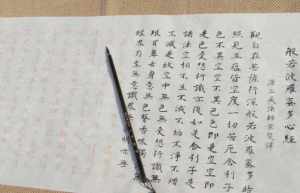 般若波羅蜜多心經
唐三藏法師玄奘譯
觀自在菩薩行深般若波羅蜜多時
照見五蘊皆空度一切苦厄舍利子
色不異空空不異色色即是空空即
是色受想行識亦復如是舍利子是
諸法空相不生不滅不垢不淨不增
不減是故空中無色無受想行識無
眼耳鼻舌身意無色聲香味觸
界乃至無意識界